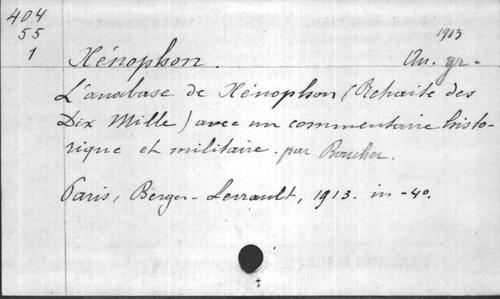 404
55
1
1913
Xénophon. Au. gr.
L'anabase de Xénophon (Retraite des
Dix Mille) avec un commentaire histo-
rique et militaire. par Boucher.
Paris, Berger-Levrault, 1913. in-4o.